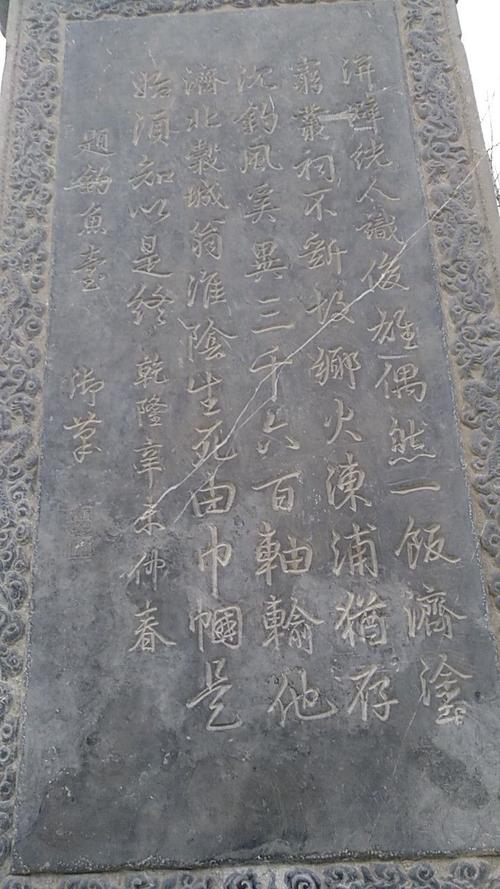 洴澼絖人識俊雄偶然一飯濟塗
窮叢祠不斷故鄉火凍浦猶存
沈釣風奚異三千六百軸輸他
濟北穀城翁淮陰生死由巾幗是
始須知以是終 乾隆辛未仲春
題釣魚臺 御筆